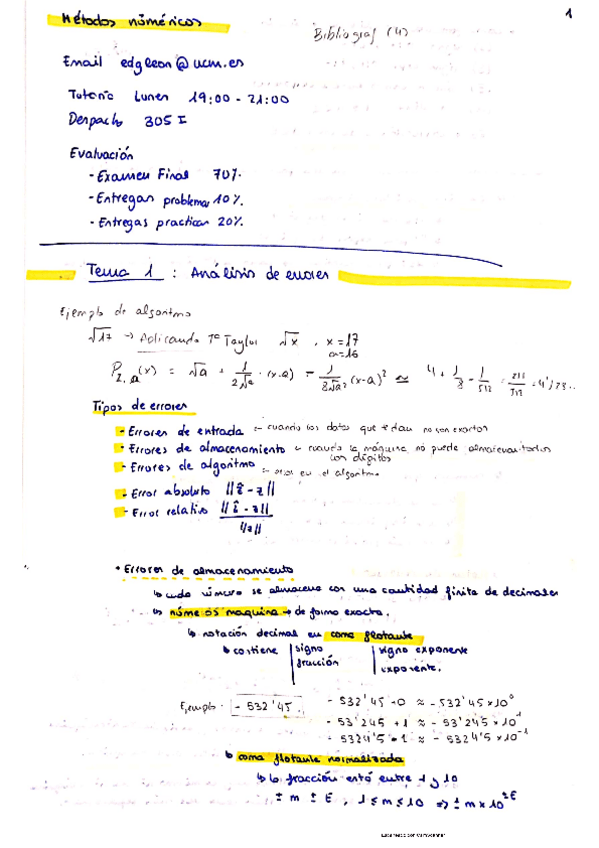 1
Métodos númericos
Bibliograf (4)
Email edgleon@ucm.es
Tutoria Lunes 19:00 - 21:00
Despacho 305 I
Evaluación
- Examen Final 70%
- Entregas problemas 10%
- Entregas practicas 20%
Tema 1 : Análisis de errores
Ejemplo de algoritmo
√17 → Aplicando Tª Taylor √x . x=17
a=16
P₂,ₐ(x) = √a + 1/(2√a) · (x-a) - 1/(8√a³) (x-a)² ≃ 4 + 1/8 - 1/512 =
Tipos de errores
- Errores de entrada :- cuando los datos que te dan no son exactos
- Errores de almacenamiento :- cuando la máquina no puede almacenar todos
los dígitos
- Errores de algoritmo :- error en el algoritmo
- Error absoluto ||ẑ - z||
- Error relativo ||ẑ - z|| / ||z||
• Errores de almacenamiento
↳ cada número se almacena con una cantidad finita de decimales
↳ números maquina → de forma exacta.
↳ notación decimal en coma flotante
↳ contiene | signo | signo exponente
fracción | exponente.
Ejemplo - 532'45 - 532'45 +0 ≈ - 532'45 x10⁰
- 53'245 +1 ≈ - 53'245 x10¹
- 5324'5 - 1 ≈ - 5324'5 x10⁻¹
↳ coma flotante normalizada
↳ la fracción está entre 1 y 10
± m ± E , 1 ≤ m ≤ 10 ⇒ ± m x 10^±E